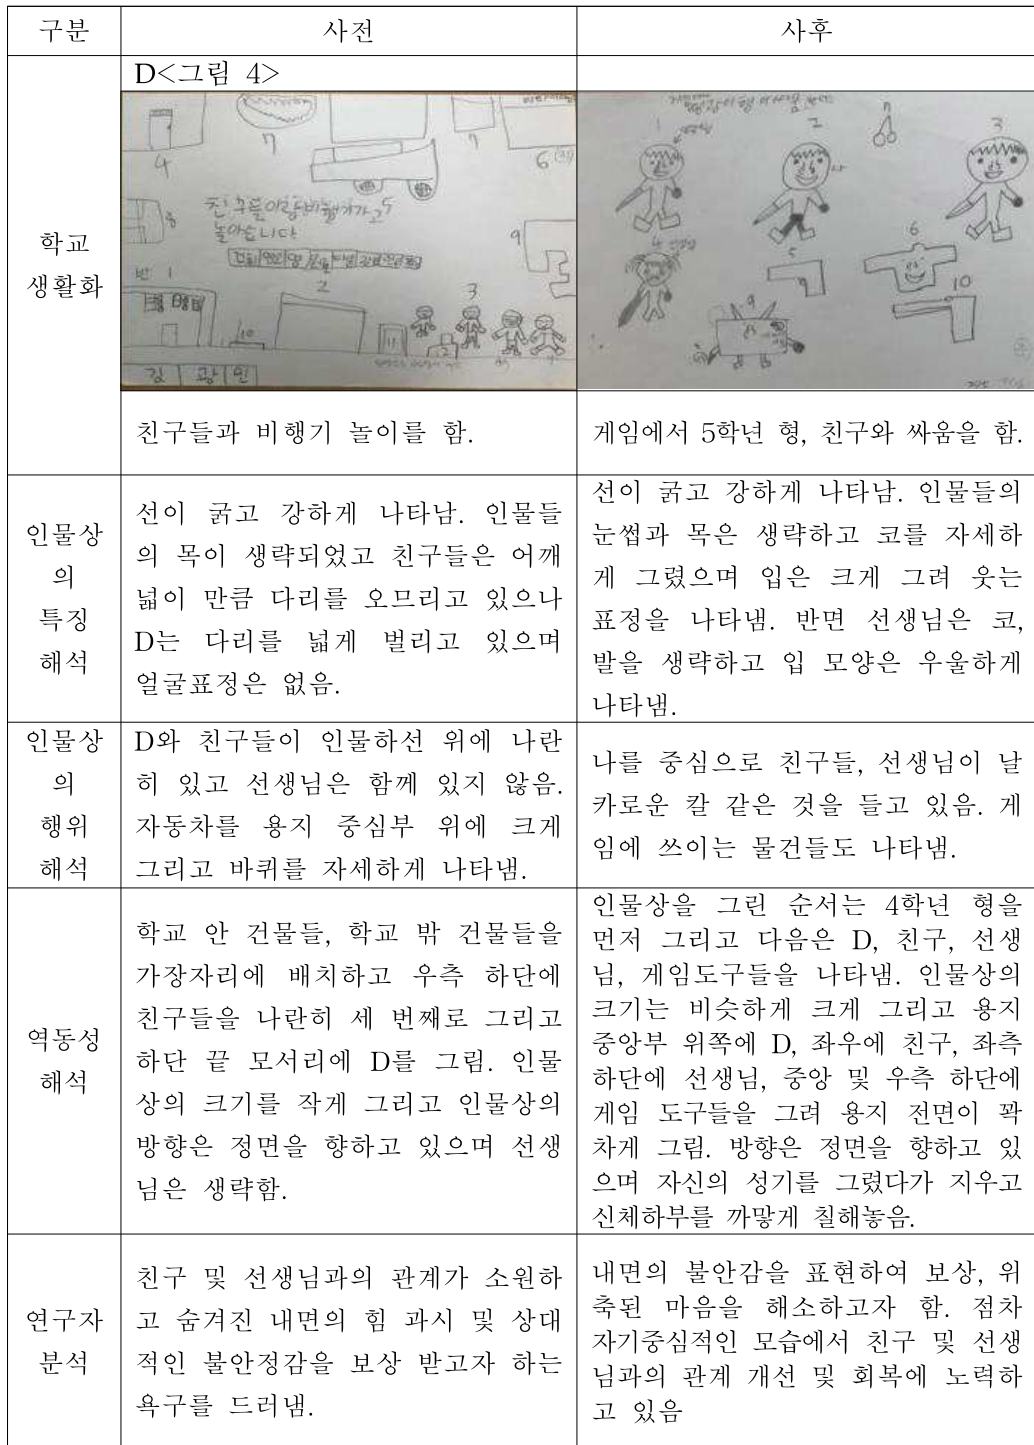 구분
사전
사후
D<그림 4>
학교
생활화
4
7
7
6
친구들이랑 비행기가고
놀아습니다
5
8
9
반 1
2
3
10
11
12
김 광 민
1
2
7
3
나
4 선생님
5
6
9
10
친구들과 비행기 놀이를 함.
게임에서 5학년 형, 친구와 싸움을 함.
인물상
의
특징
해석
선이 굵고 강하게 나타남. 인물들
의 목이 생략되었고 친구들은 어깨
넓이 만큼 다리를 오므리고 있으나
D는 다리를 넓게 벌리고 있으며
얼굴표정은 없음.
선이 굵고 강하게 나타남. 인물들의
눈썹과 목은 생략하고 코를 자세하
게 그렸으며 입은 크게 그려 웃는
표정을 나타냄. 반면 선생님은 코,
발을 생략하고 입 모양은 우울하게
나타냄.
인물상
의
행위
해석
D와 친구들이 인물하선 위에 나란
히 있고 선생님은 함께 있지 않음.
자동차를 용지 중심부 위에 크게
그리고 바퀴를 자세하게 나타냄.
나를 중심으로 친구들, 선생님이 날
카로운 칼 같은 것을 들고 있음. 게
임에 쓰이는 물건들도 나타냄.
역동성
해석
학교 안 건물들, 학교 밖 건물들을
가장자리에 배치하고 우측 하단에
친구들을 나란히 세 번째로 그리고
하단 끝 모서리에 D를 그림. 인물
상의 크기를 작게 그리고 인물상의
방향은 정면을 향하고 있으며 선생
님은 생략함.
인물상을 그린 순서는 4학년 형을
먼저 그리고 다음은 D, 친구, 선생
님, 게임도구들을 나타냄. 인물상의
크기는 비슷하게 크게 그리고 용지
중앙부 위쪽에 D, 좌우에 친구, 좌측
하단에 선생님, 중앙 및 우측 하단에
게임 도구들을 그려 용지 전면이 꽉
차게 그림. 방향은 정면을 향하고 있
으며 자신의 성기를 그렸다가 지우고
신체하부를 까맣게 칠해놓음.
연구자
분석
친구 및 선생님과의 관계가 소원하
고 숨겨진 내면의 힘 과시 및 상대
적인 불안정감을 보상 받고자 하는
욕구를 드러냄.
내면의 불안감을 표현하여 보상, 위
축된 마음을 해소하고자 함. 점차
자기중심적인 모습에서 친구 및 선생
님과의 관계 개선 및 회복에 노력하
고 있음